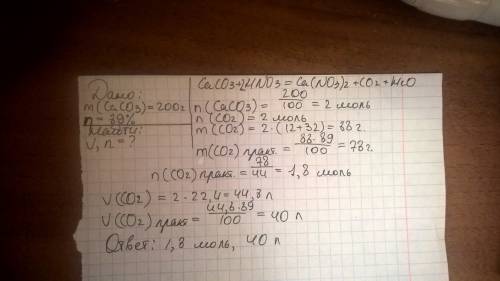 Дано:
m(CaCO3)=200г
n=89%
Найти:
V, n=?
CaCO3+2HNO3=Ca(NO3)2+CO2+H2O
n(CaCO3)=200/100=2 моль
n(CO2)=2 моль
m(CO2)=2·(12+32)=88г.
m(CO2) практ.=88·89/100=78г.
n(CO2) практ.=78/44=1,8 моль
V(CO2)=2·22,4=44,8 л
V(CO2) практ=44,8·89/100=40 л
Ответ: 1,8 моль, 40 л